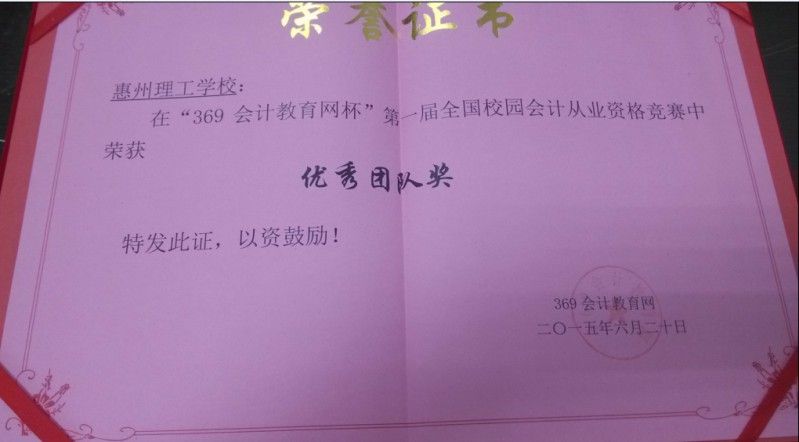 荣誉证书
惠州理工学校：
在“369 会计教育网杯”第一届全国校园会计从业资格竞赛中
荣获
优秀团队奖
特发此证，以资鼓励！
369 会计教育网
二〇一五年六月二十日